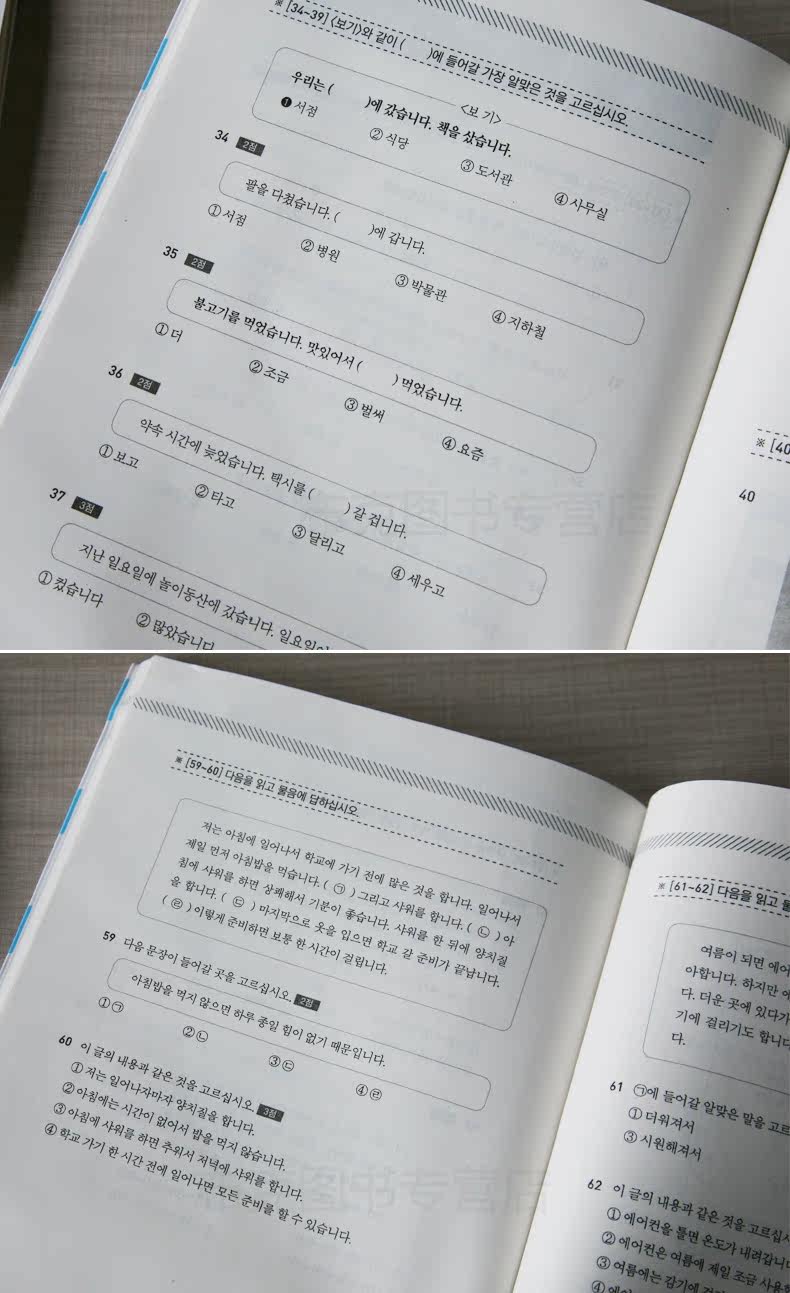 ※ [34~39] 〈보기〉와 같이 (      )에 들어갈 가장 알맞은 것을 고르십시오.
〈보 기〉
우리는 (      )에 갔습니다. 책을 샀습니다.
❶ 서점 ② 식당 ③ 도서관 ④ 사무실
34 2점
팔을 다쳤습니다. (      )에 갑니다.
① 서점 ② 병원 ③ 박물관 ④ 지하철
35 2점
불고기를 먹었습니다. 맛있어서 (      ) 먹었습니다.
① 더 ② 조금 ③ 벌써 ④ 요즘
36 2점
약속 시간에 늦었습니다. 택시를 (      ) 갈 겁니다.
① 보고 ② 타고 ③ 달리고 ④ 세우고
37 3점
지난 일요일에 놀이동산에 갔습니다.
① 컸습니다 ② 많았습니다
※ [40
40
图书专营店
※ [59~60] 다음을 읽고 물음에 답하십시오.
저는 아침에 일어나서 학교에 가기 전에 많은 것을 합니다. 일어나서
제일 먼저 아침밥을 먹습니다. ( ㉠ ) 그리고 샤워를 합니다. ( ㉡ ) 아
침에 샤워를 하면 상쾌해서 기분이 좋습니다. 샤워를 한 뒤에 양치질
을 합니다. ( ㉢ ) 마지막으로 옷을 입으면 학교 갈 준비가 끝납니다.
( ㉣ ) 이렇게 준비하면 보통 한 시간이 걸립니다.
59 다음 문장이 들어갈 곳을 고르십시오. 2점
아침밥을 먹지 않으면 하루 종일 힘이 없기 때문입니다.
① ㉠ ② ㉡ ③ ㉢ ④ ㉣
60 이 글의 내용과 같은 것을 고르십시오. 3점
① 저는 일어나자마자 양치질을 합니다.
② 아침에는 시간이 없어서 밥을 먹지 않습니다.
③ 아침에 샤워를 하면 추워서 저녁에 샤워를 합니다.
④ 학교 가기 한 시간 전에 일어나면 모든 준비를 할 수 있습니다.
图书专营店
※ [61~62] 다음을 읽고
여름이 되면 에어
아합니다. 하지만
다. 더운 곳에 있다가
기에 걸리기도 합니
다.
61 ㉠에 들어갈 알맞은 말을 고르
① 더워져서
③ 시원해져서
62 이 글의 내용과 같은 것을 고르십시
① 에어컨을 틀면 온도가 내려갑니
② 에어컨은 여름에 제일 조금 사용
③ 여름에는 감기에